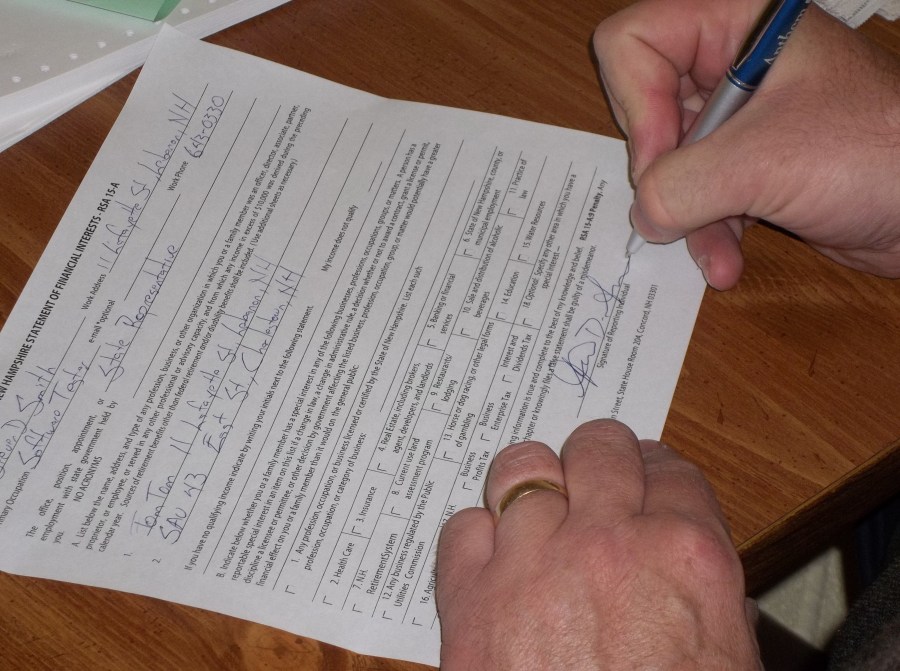 NEW HAMPSHIRE STATEMENT OF FINANCIAL INTERESTS - RSA 15-A
D Smith Work Address 11 Lafayette St Lebanon, NH
Primary Occupation Software e-mail *optional Work Phone 643-0330
The office, position, appointment, or State Representative
employment with state government held by
you NO ACRONYMS
A. List below the name, address, and type of any profession, business, or other organization in which you or a family member was an officer, director, associate, partner,
proprietor, or employee, or served in any other professional or advisory capacity, and from which any income in excess of $10,000 was derived during the preceding
calendar year. Sources of retirement benefits other than federal retirement and/or disability benefits shall be included. (Use additional sheets as necessary.)
1. Tom Tom 11 Lafayette St Lebanon, NH
2. SAU 43 East St, Charlestown, NH
If you have no qualifying income indicate by writing your initials next to the following statement. My income does not qualify
B. Indicate below whether you or a family member has a special interest in any of the following businesses, professions, occupations, groups, or matters. A person has a
reportable special interest in an item on this list if a change in law, a change in administrative rule, a decision whether or not to award a contract, grant a license or permit,
discipline a licensee or permittee, or other decision by government affecting the listed business, profession, occupation, group, or matter would potentially have a greater
financial effect on you or a family member than it would on the general public.
1. Any profession, occupation, or business licensed or certified by the State of New Hampshire. List each such
profession, occupation, or category of business:
2. Health Care 3. Insurance 4. Real Estate, including brokers,
agent, developers, and landlords 5. Banking or financial
services 6. State of New Hampshire, county, or
municipal employment
7. N.H.
Retirement System 8. Current use land
assessment program 9. Restaurants/
lodging 10. Sale and distribution of alcoholic
beverages 11. Practice of
law
12. Any business regulated by the Public
Utilities Commission 13. Horse or dog racing, or other legal forms
of gambling 14. Education 15. Water Resources
16. N.H. Business
Profits Tax Business
Enterprise Tax Interest and
Dividends Tax 18. Optional: Specify any other area in which you have a
special interest --
information is true and complete to the best of my knowledge and belief. RSA 15-A:9 Penalty. Any
chapter or knowingly files a false statement shall be guilty of a misdemeanor.
Signature of Reporting Individual
Street, State House Room 204, Concord, NH 03301